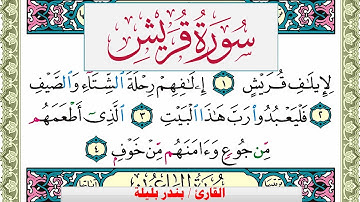 سُورَةُ قُرَيْشٍ
لِإِيلَٰفِ قُرَيْشٍ ١ إِۦلَٰفِهِمْ رِحْلَةَ ٱلشِّتَآءِ وَٱلصَّيْفِ
٢ فَلْيَعْبُدُوا۟ رَبَّ هَٰذَا ٱلْبَيْتِ ٣ ٱلَّذِىٓ أَطْعَمَهُم
مِّن جُوعٍ وَءَامَنَهُم مِّنْ خَوْفٍۭ ٤
القارئ / بندر بليلة